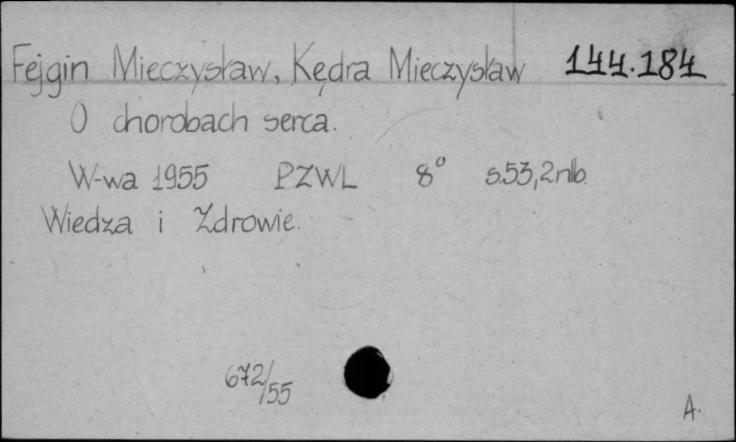 Fejgin Mieczysław, Kędra Mieczysław 144.184
O chorobach serca.
W-wa 1955 PZWL 8° s.53,2nlb.
Wiedza i Zdrowie.
672/55
A.